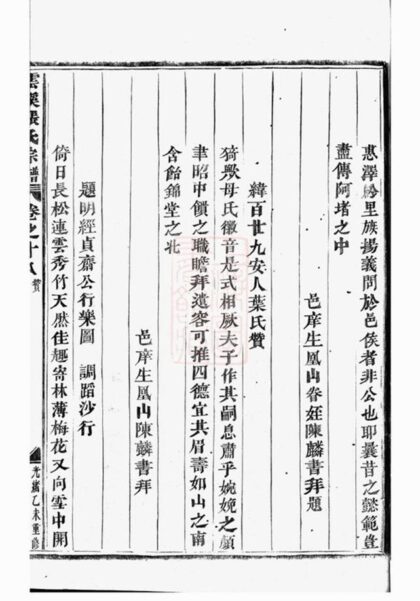 惠澤於里族揚義問於邑侯者非公也耶曩昔之懿範豈
盡傳阿堵之中
邑庠生鳳山眷姪陳麟書拜題
緯百廿九安人葉氏贊
猗歟母氏徽音是式相厥夫子作其嗣息肅乎婉娩之顏
聿昭中饋之職瞻拜遺容可推四德宜其眉壽如山之南
含飴錦堂之北
邑庠生鳳山陳麟書拜
題明經貞齋公行樂圖 調蹈沙行
倚日長松連雲秀竹天然佳趣寄林薄梅花又向雪中開
氏宗譜 卷之十八 贊 光緒乙未重修